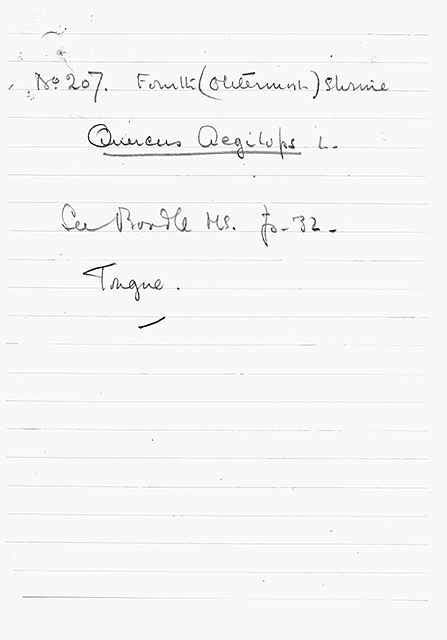 No 207. Fourth (Outermost) Shrine
Quercus Aegilops L.
See Boodle MS. p. 32.
Tongue.